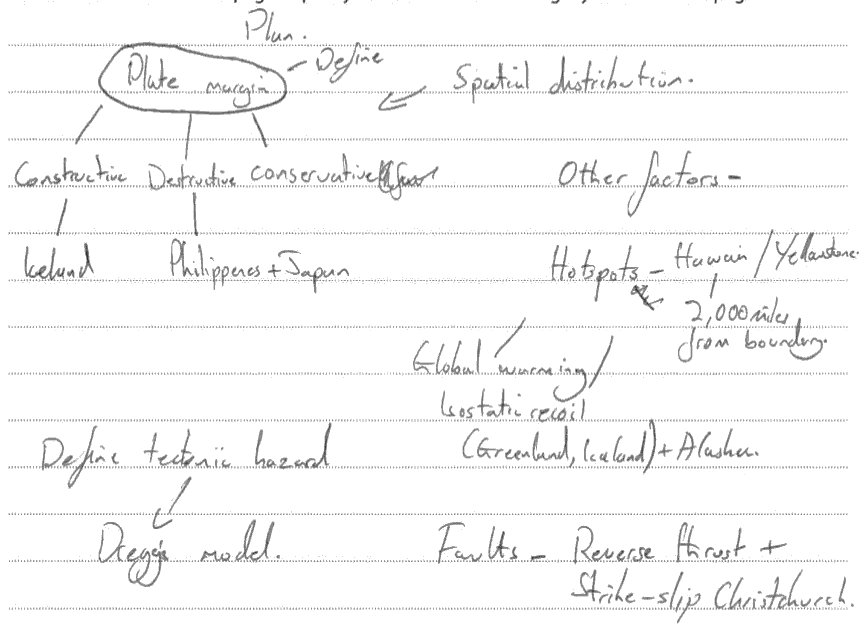 Plan.
Plate margin – Define
Spatial distribution.
Constructive Destructive conservative
Other factors –
Iceland Philippenes + Japan
Hotspots – Hawaii / Yellowstone.
2,000 miles
from boundary.
Global warming /
Isostatic recoil
(Greenland, Iceland) + Alaska.
Define tectonic hazard
Degg's model.
Faults – Reverse thrust +
Strike-slip Christchurch.